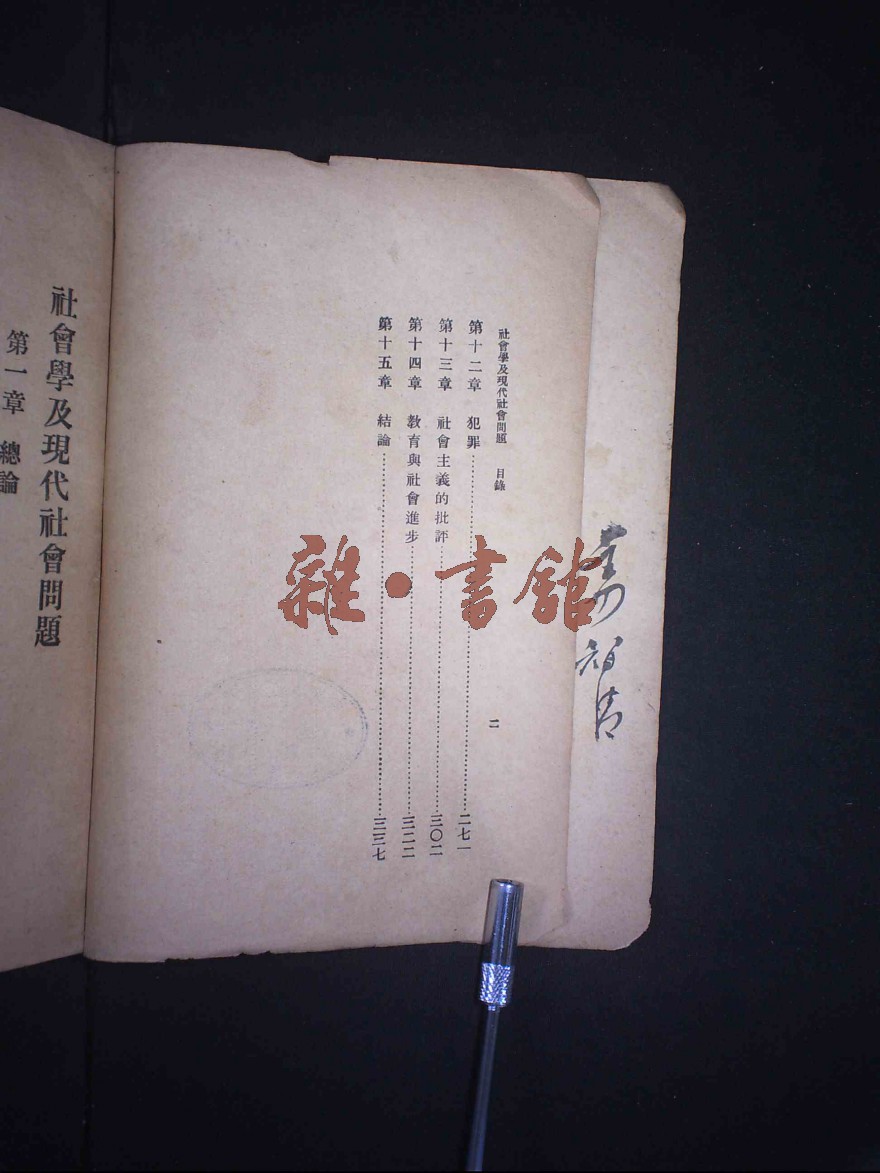 社會學及現代社會問題　目錄
二
第十二章　犯罪……二七一
第十三章　社會主義的批評……三〇二
第十四章　教育與社會進步……三二二
第十五章　結論……三三七
社會學及現代社會問題
第一章　總論
雜·書館
智清